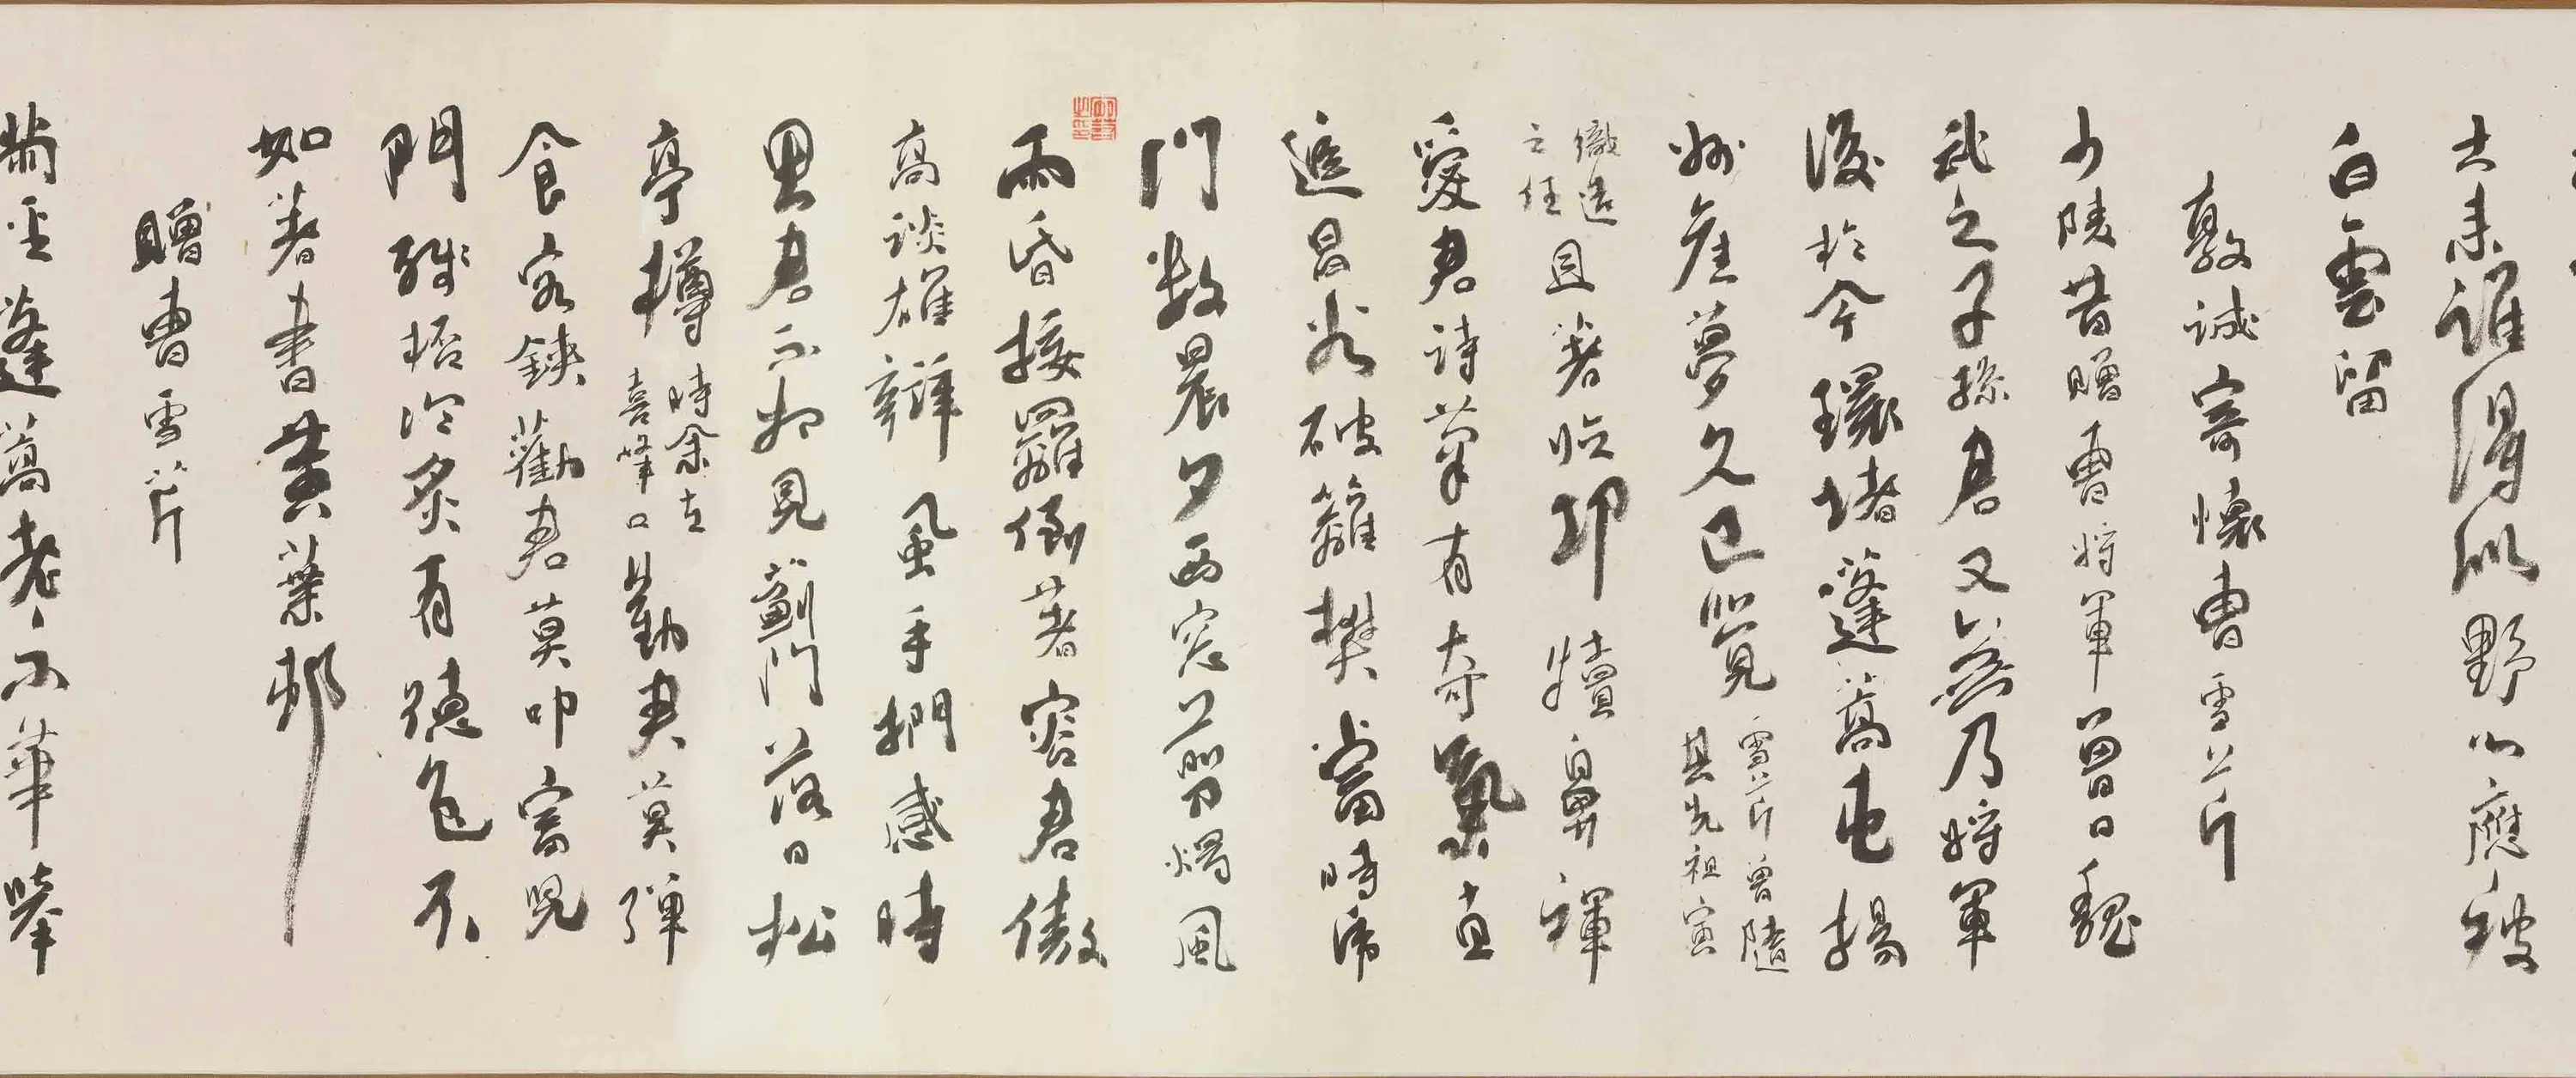 古來誰得似野心應被
白雲留
敦誠寄懷曹雪芹
少陵昔贈曹將軍曾曰魏
武之子孫君又無乃將軍
後於今環堵蓬蒿屯揚
州舊夢久已覺雪芹曾隨其先祖寅
織造之任且著臨邛犢鼻褌
愛君詩筆有奇氣直
追昌谷破籬樊當時虎
門數晨夕西窗剪燭風
雨昏接羅倒著容君傲
高談雄辯虱手捫感時
思君不相見薊門落日松
亭樽時余在喜峰口勸君莫彈
食客鋏勸君莫叩富兒
門殘杯冷炙有德色不
如著書黃葉邨
贈曹雪芹
滿徑蓬蒿老不華舉